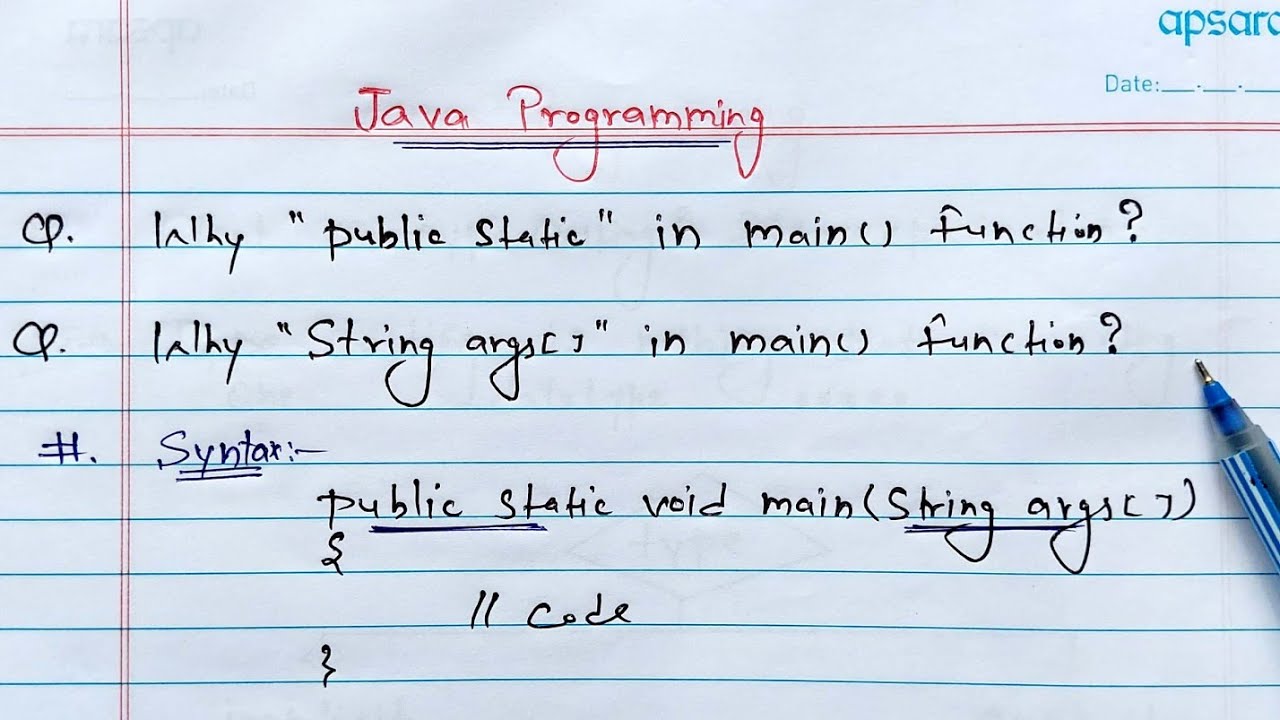 apsara
Date:__.__.__
Java Programming
Q. Why "public static" in main() function?
Q. Why "String args[]" in main() function?
#. Syntax:-
public static void main(String args[])
{
// code
}